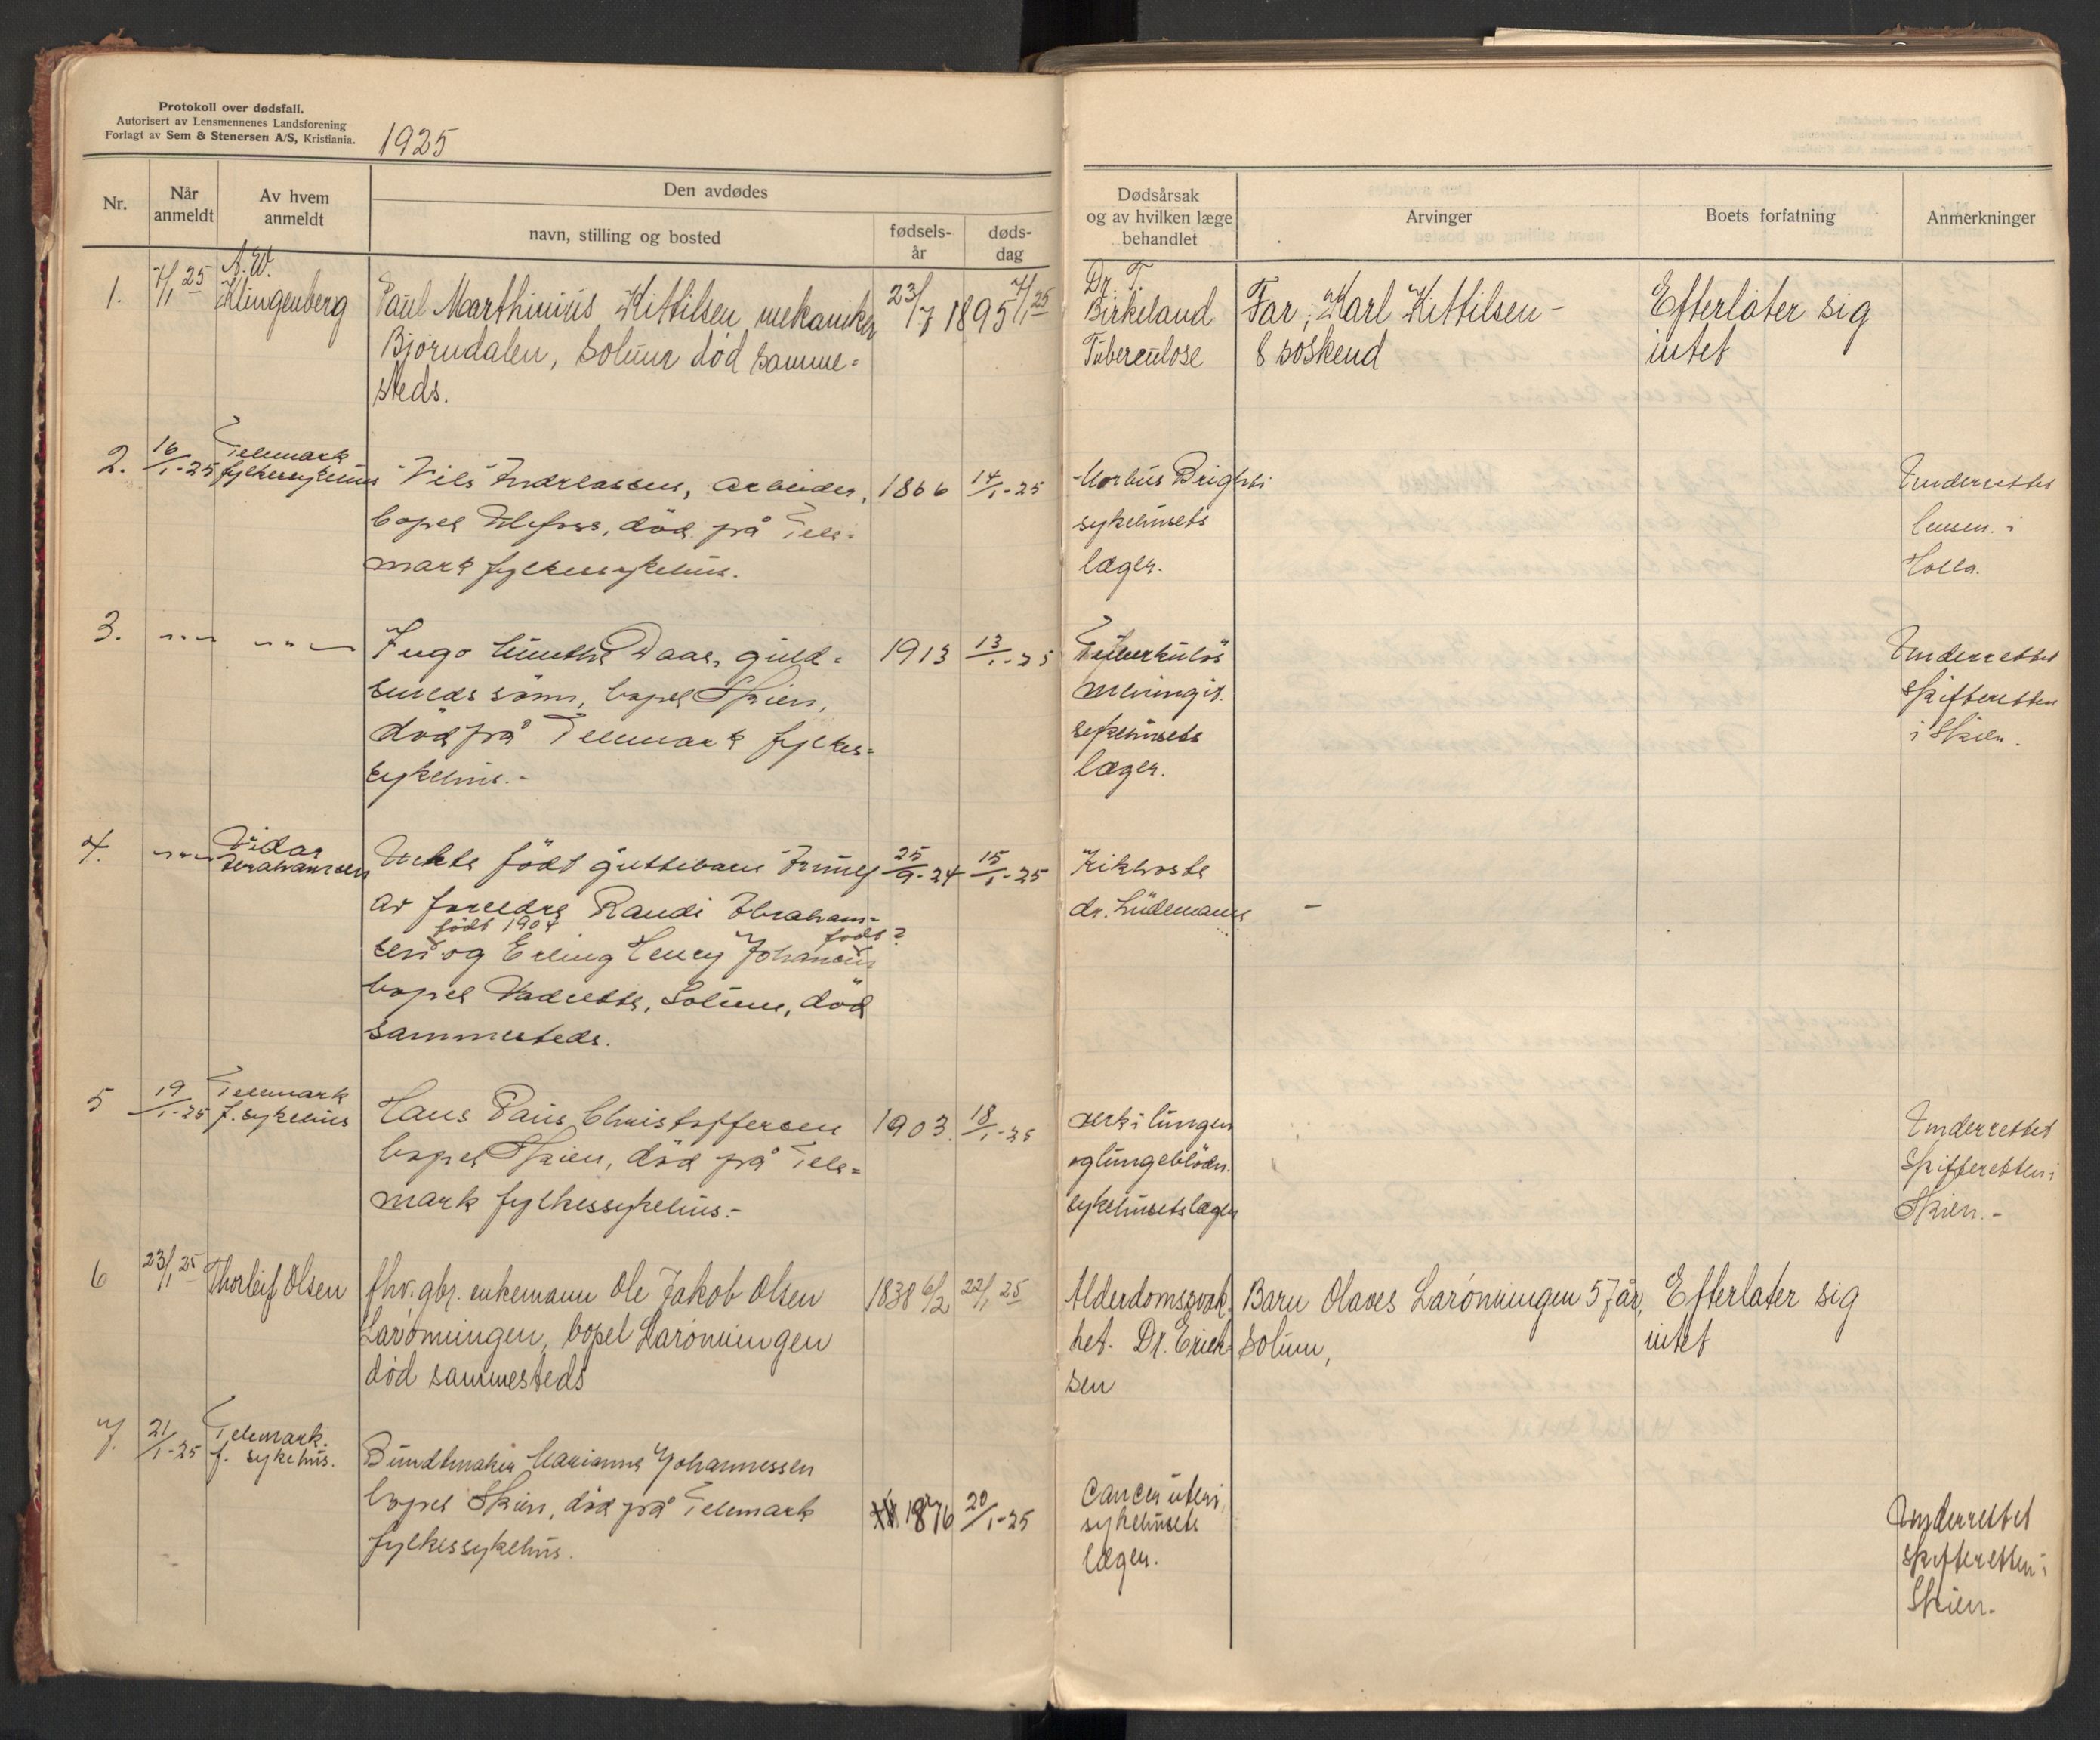 Protokoll over dødsfall.
Autorisert av Lensmennenes Landsforening
Forlagt av Sem & Stenersen A/S, Kristiania.
1925
Nr.
Når anmeldt
Av hvem anmeldt
Den avdødes
navn, stilling og bosted
fødsels-år
døds-dag
Dødsårsak
og av hvilken læge
behandlet
Arvinger
Boets forfatning
Anmerkninger
1.
7/1 25
A. W.
Klingenberg
Paul Marthinius Kittilsen mekaniker
Bjørndalen, Solum død samme-
steds.
23/7 1895
7/1 25
Dr. T.
Birkeland
Tuberculose
Far; Karl Kittilsen -
8 søskend
Efterlater sig
intet
2.
16/1-25
Telemark
fylkessykehus
Nils Andreassen, arbeider,
bopel Ulefoss, död på Tele-
mark fylkessykehus.
1866
14/1-25
Morbus Brighti
sykehusets
læger.
Underrettet
lensm. i
Holla.
3.
-"-
-"-
Daae, guld-
smeds sönn, bopel Skien,
död på Telemark fylkes-
sykehus.-
1913
13/1-25
Tuberkulös
meningit.
sykehusets
læger.
Underrettet
Skifteretten
i Skien.
4.
-"-
Vidar
Abrahamsen
Uekte födt guttebarn
av foreldre Randi Abraham-
födt 1904
födt?
sen og Erling Henry Johansen
bopel Solum, död
sammesteds.
25/9-24
15/1-25
Kikhoste
dr. Lüdemann
-
5
19/1-25
Telemark
f. sykehus
Hans Paus Christoffersen
bopel Skien, död på Tele-
mark fylkessykehus.-
1903.
18/1-25
verk i lungen
og lungeblödn.
sykehusets læger
Underrettet
Skifteretten i
Skien.-
6
23/1 25
Thorleif Olsen
fhv. gbr. enkemann Ole Jakob Olsen
Larønningen, bopel Larønningen
død sammesteds
1838 6/2
22/1 25
Alderdomssvak-
het. Dr. Erich-
sen
Barn Olaves Larønningen 57 år,
Solum,
Efterlater sig
intet
7.
21/1-25
Telemark.
f. sykehus.
Bundtmaker Marianne Johannessen
bopel Skien, död på Telemark
fylkessykehus.
1876
20/1-25
Cancer uteri,
sykehusets
læger.
Underrettet
Skifteretten i
Skien.